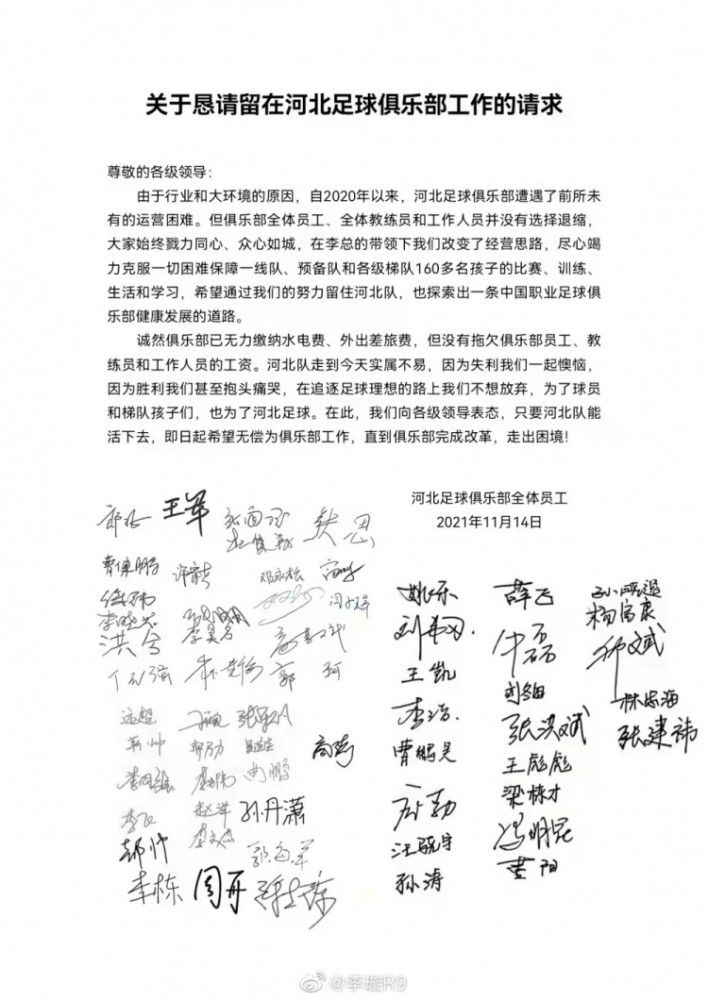 关于恳请留在河北足球俱乐部工作的请求
尊敬的各级领导：
由于行业和大环境的原因，自2020年以来，河北足球俱乐部遭遇了前所未
有的运营困难。但俱乐部全体员工、全体教练员和工作人员并没有选择退缩，
大家始终戮力同心、众心如城，在李总的带领下我们改变了经营思路，尽心竭
力克服一切困难保障一线队、预备队和各级梯队160多名孩子的比赛、训练、
生活和学习，希望通过我们的努力留住河北队，也探索出一条中国职业足球俱
乐部健康发展的道路。
诚然俱乐部已无力缴纳水电费、外出差旅费，但没有拖欠俱乐部员工、教
练员和工作人员的工资。河北队走到今天实属不易，因为失利我们一起懊恼，
因为胜利我们甚至抱头痛哭，在追逐足球理想的路上我们不想放弃，为了球员
和梯队孩子们，也为了河北足球。在此，我们向各级领导表态，只要河北队能
活下去，即日起希望无偿为俱乐部工作，直到俱乐部完成改革，走出困境！
河北足球俱乐部全体员工
2021年11月14日
王军
郭 珂
孙丹潇
李栋 周开
姚乐 薛飞
王凯
李浩
曹鹏昊 张洪斌
王彪彪
梁栋才
汪晓宇 冯明昆
孙涛 黄阳
杨富康
林忠海
张建祎
@李璇R9